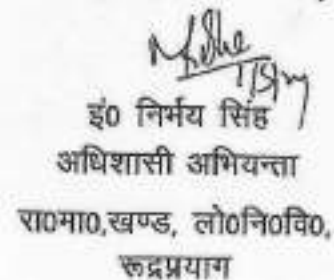 इं0 निर्मय सिंह
अधिशासी अभियन्ता
रा0मा0,खण्ड, लो0नि0वि0,
रूद्रप्रयाग